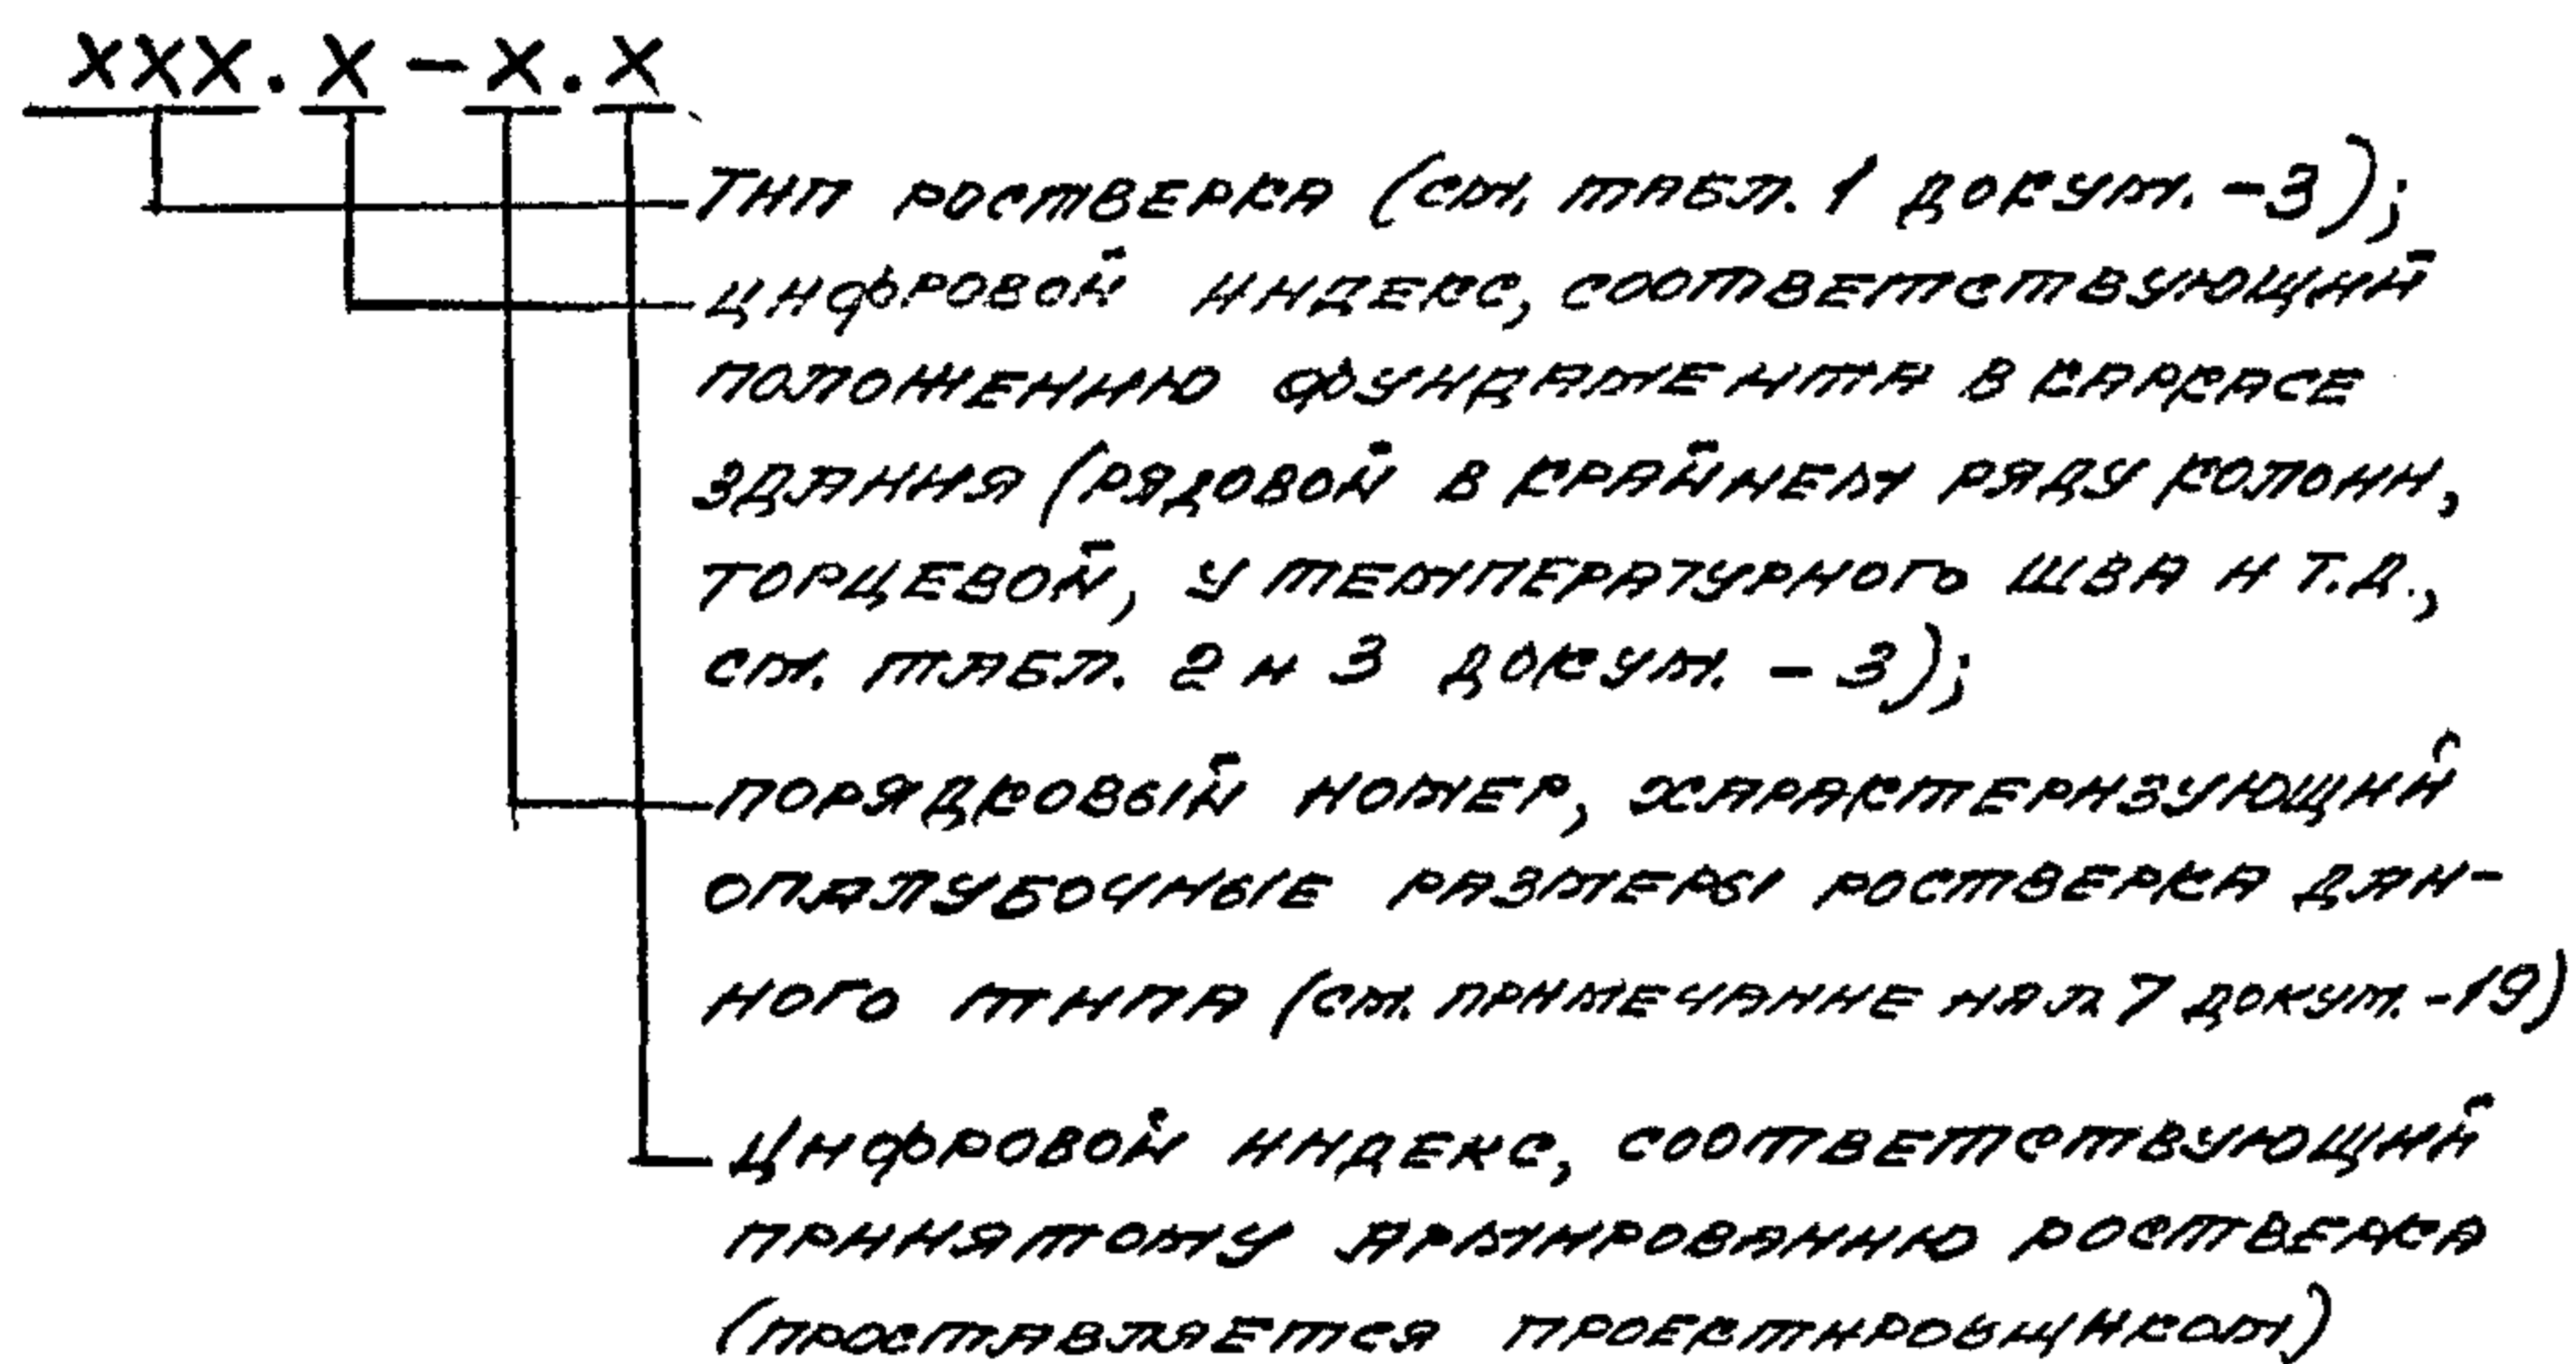 ХХХ.Х-Х.Х
ТИП РОСТВЕРКА (СМ. ТАБЛ. 1 ДОКУМ. -3);
ЦИФРОВОЙ ИНДЕКС, СООТВЕТСТВУЮЩИЙ
ПОЛОЖЕНИЮ ФУНДАМЕНТА В КАРКАСЕ
ЗДАНИЯ (РЯДОВОЙ В КРАЙНЕМ РЯДУ КОЛОНН,
ТОРЦЕВОЙ, У ТЕМПЕРАТУРНОГО ШВА И Т.Д.,
СМ. ТАБЛ. 2 И 3 ДОКУМ. - 3);
ПОРЯДКОВЫЙ НОМЕР, ХАРАКТЕРИЗУЮЩИЙ
ОПАЛУБОЧНЫЕ РАЗМЕРЫ РОСТВЕРКА ДАН-
НОГО ТИПА (СМ. ПРИМЕЧАНИЕ НА Л 7 ДОКУМ. -19)
ЦИФРОВОЙ ИНДЕКС, СООТВЕТСТВУЮЩИЙ
ПРИНЯТОМУ АРМИРОВАНИЮ РОСТВЕРКА
(ПРОСТАВЛЯЕТСЯ ПРОЕКТИРОВЩИКОМ)